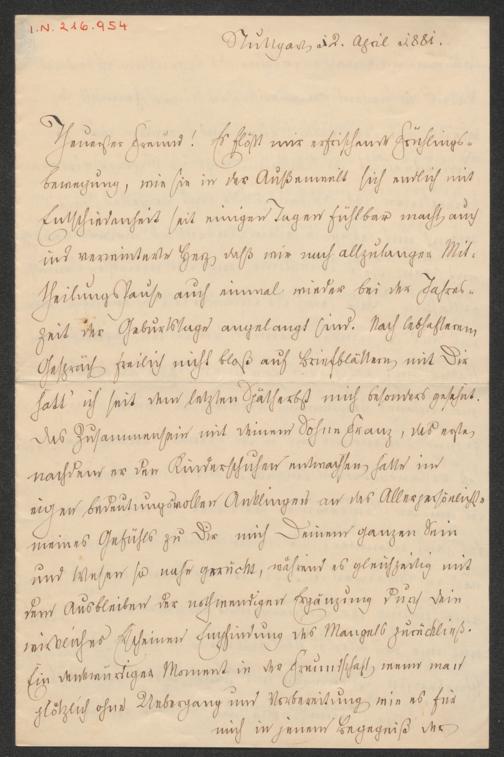 I.N. 216.954
Stuttgart 2. April 1881.
Theuerster Freund! Es flößt mir erfrischende Frühlings-
bewegung, wie sie in der Außenwelt sich endlich mit
Entschiedenheit seit einigen Tagen fühlbar macht, auch
ins Herz, daß wir nach allzulanger Mit-
theilungspause auch einmal wieder bei der Jahres-
zeit der Geburtstage angelangt sind. Nach lebhafterem
Gespräch freilich nicht bloß auf Briefblättern mit Dir
hatt' ich seit dem letzten Spätherbst mich besonders gesehnt.
Das Zusammensein mit Deinem Sohne Franz, das erste,
nachdem er den Kinderschuhen entwachsen, hatte im
eigen bedeutungsvollen Anklingen an das Allerpersönlichste
meines Gefühls zu Dir mich Deinem ganzen Sein
und Wesen so nahe gerückt, während es gleichzeitig mit
dem Ausbleiben der nothwendigen Ergänzung durch Dein
wirkliches Erscheinen Empfindung des Mangels zurückließ.
Ein denkwürdiger Moment in der Freundschaft, wenn man
plötzlich ohne Uebergang und Vorbereitung wie es für
mich in jenem Begegniß der